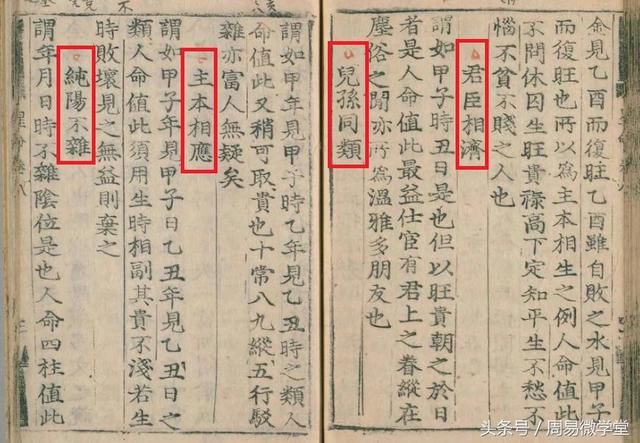 金見乙酉而復旺乙酉雖自敗之水見甲子
而復旺也所以爲主本相生之例人命值此
不問休囚生旺貴祿高下定知平生不愁不
惱不貧不賤之人也
君臣相濟
謂如甲子時丑日是也但以旺貴朝之於日
者是人命值此最益仕宦有君上之眷縱在
塵俗之間亦所爲溫雅多朋友也
兒孫同類
謂如甲年見甲子時乙年見乙丑時之類人
命值此又稍可取貴也十常八九縱五行駁
雜亦富人無疑矣
主本相應
謂如甲子年見甲子日乙丑年見乙丑日之
類人命值此須用生時相副其貴不淺若生
時敗壞見之無益則棄之
純陽不雜
謂年月日時不雜陰位是也人命四柱值此
头条号/周易微学堂